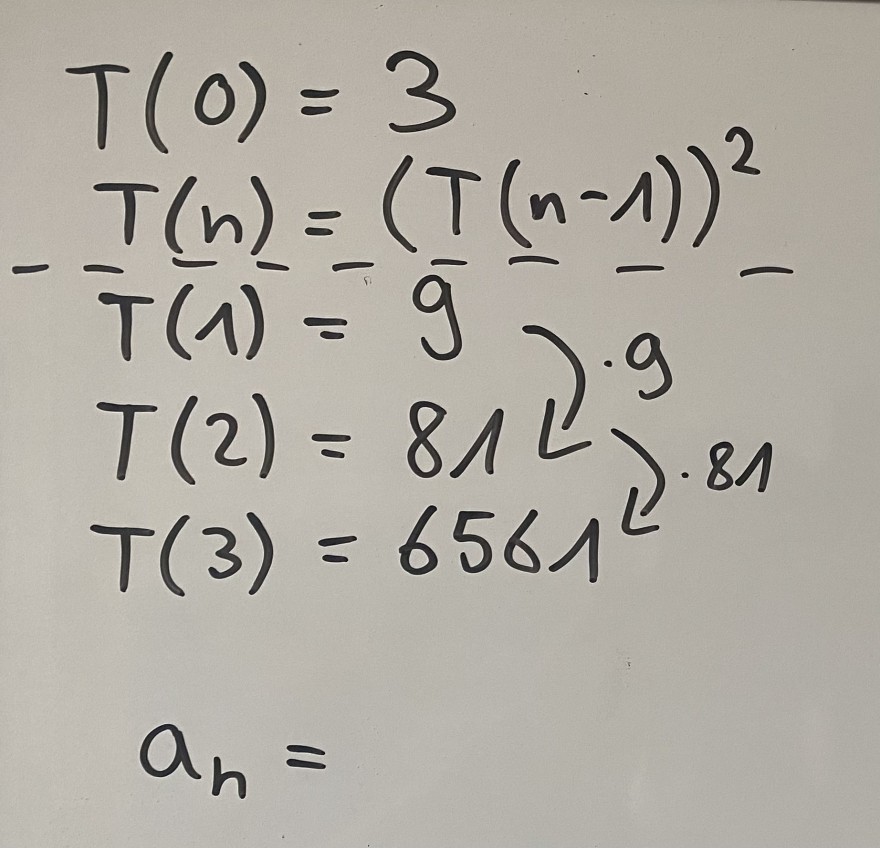 T(0) = 3
T(n) = (T(n-1))²
- - - - - - - - -
T(1) = 9
·9
T(2) = 81
·81
T(3) = 6561
aₙ =